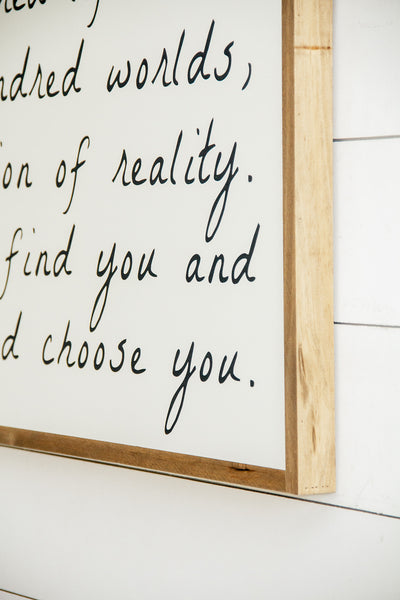 ndred worlds,
on of reality.
find you and
d choose you.